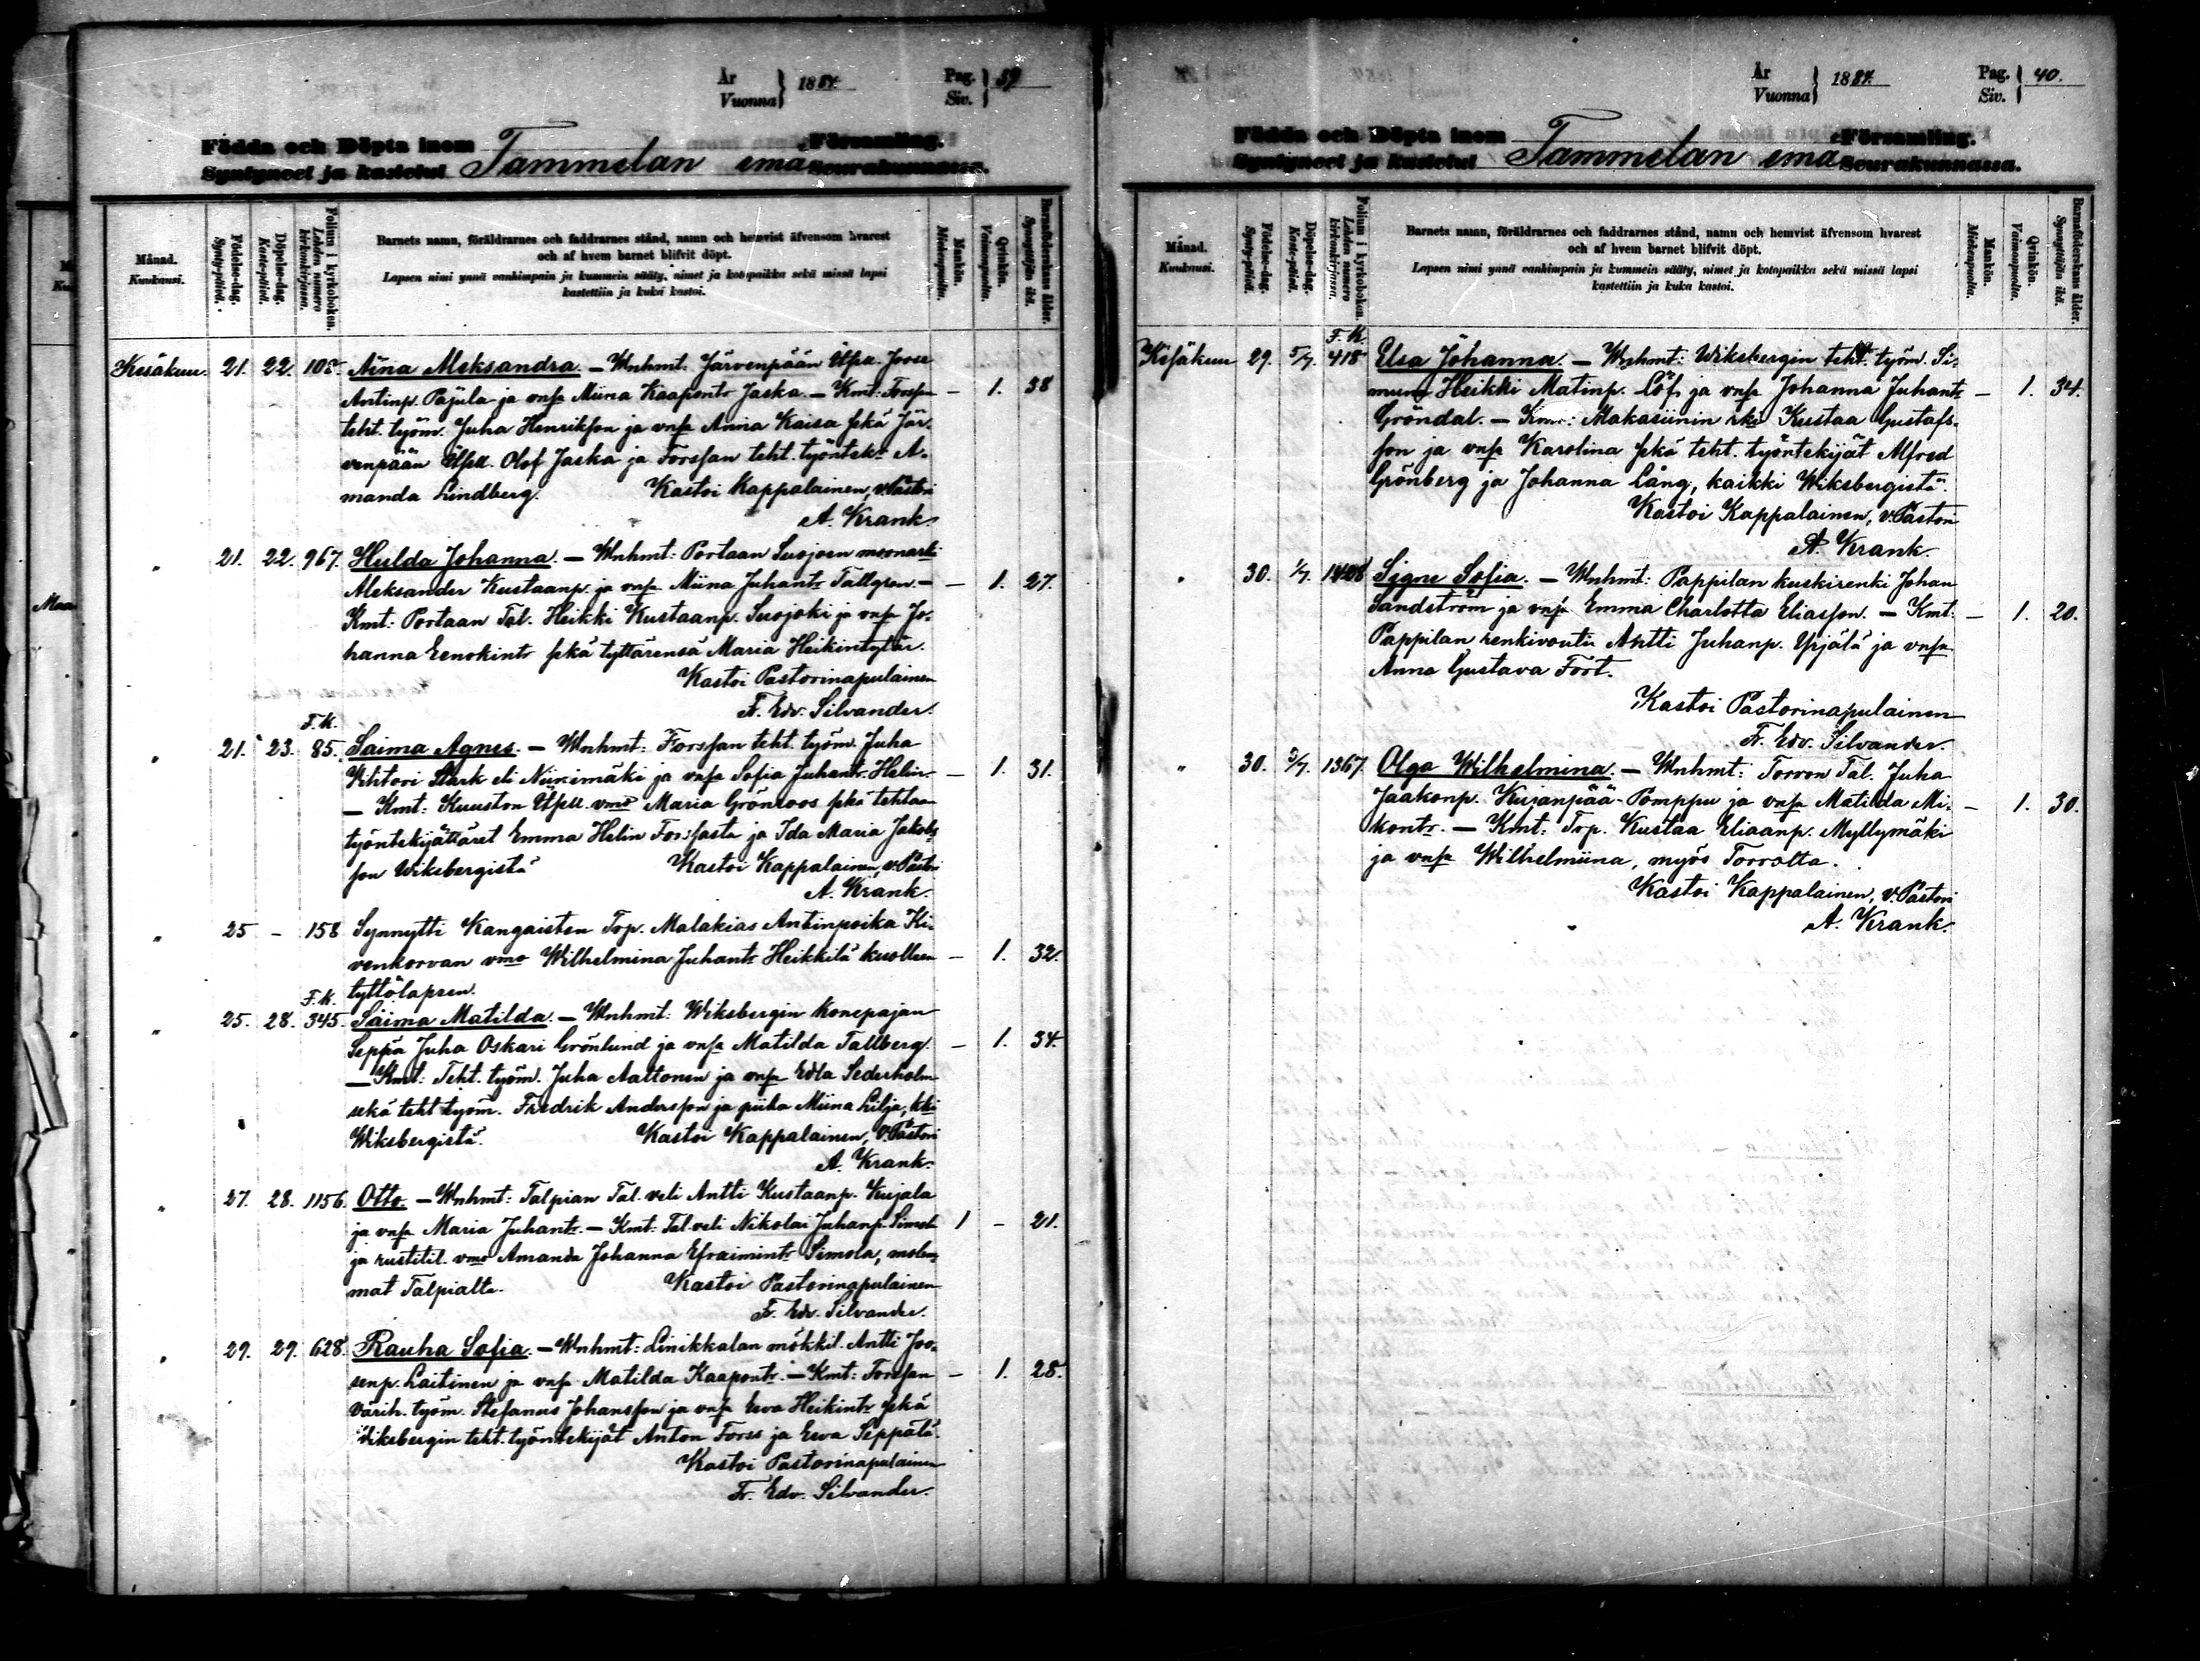 År
Vuonna } 1884.
Pag.
Siv. } 39
Födda och Döpta inom
Syntyneet ja kastetut Tammelan emä
Församling.
Seurakunnassa.
Månad.
Kuukausi.
Födelse-dag.
Synty-päivä.
Döpelse-dag.
Kaste-päivä.
Folium i kyrkoboken.
Lehden numero kirkonkirjassa.
Barnets namn, föräldrarnes och faddrarnes stånd, namn och hemvist äfvensom hvarest
och af hvem barnet blifvit döpt.
Lapsen nimi ynnä vanhimpain ja kummein sääty, nimet ja kotopaikka sekä missä lapsi
kastettiin ja kuka kastoi.
Mankön.
Miehenpuolia.
Qvinkön.
Vaimonpuolia.
Barnaföderskans ålder.
Synnyttäjän ikä.
Kesäkuu. 21. 22. 108. Aina Aleksandra. — Wnhmt. Järvenpään Itsell. Joose
Antinp. Pajula ja vnsa Miina Kaapontr Jaska. — Kmt: Forssan — 1. 38
teht. työm. Juha Henriksson ja vnsa Anna Kaisa sekä Jär-
venpään Itsell. Olof Jaska ja Forssan teht. työntek. A-
manda Lindberg. Kastoi Kappalainen, v. Pastori
A. Krank.
" 21. 22. 967. Hulda Johanna. — Wnhmt: Portaan Suojoen
Aleksander Kustaanp. ja vnsa Miina Juhantr Tallgren. — — 1. 27.
Kmt: Portaan Tal. Heikki Kustaanp. Suojoki ja vnsa Jo-
hanna Eenokintr sekä tyttärensä Maria Heikintytär.
Kastoi Pastorinapulainen
Fr. Edv. Silvander.
F. K.
" 21. 23. 85. Saima Agnes. — Wnhmt: Forssan teht. työm. Juha
Wihtori Stark eli Niinimäki ja vnsa Sofia Juhantr. Helin. — 1. 31.
— Kmt: Kuuston Itsell. vmo Maria Grönroos sekä tehtaan
työntekijättäret Emma Helin Forssasta ja Ida Maria Jakobs-
son Wiksbergistä Kastoi Kappalainen, v. Pastori
A. Krank.
" 25 - 158 Synnytti Kangaisten Torp. Malakias Antinpoika Ki-
venkorvan vmo Wilhelmina Juhantr Heikkilä kuolleen — 1. 32.
tyttölapsen.
F. K.
" 25. 28. 345. Saima Matilda. — Wnhmt: Wiksbergin Konepajan
Seppä Juha Oskari Grönlund ja vnsa Matilda Tallberg. — 1. 34.
— Kmt: Teht. työm. Juha Aaltonen ja vnsa Edla Sederholm
sekä teht työm. Fredrik Andersson ja piika Miina Lilja, kki
Wiksbergistä. Kastoi Kappalainen, v. Pastori
A. Krank.
" 27. 28. 1156. Otto. — Wnhmt: Talpian Tal. veli Antti Kustaanp. Kujala
ja vnsa Maria Juhantr. — Kmt: Tal. veli Nikolai Juhanp. Simola 1 - 21.
ja rustitil. vmo Amanda Johanna Efraimintr Simola, molem-
mat Talpialta. Kastoi Pastorinapulainen
Fr. Edv. Silvander.
" 29. 29. 628. Rauha Sofia. — Wnhmt: Linikkalan mökkil. Antti Joo-
senp. Laitinen ja vnsa Matilda Kaapontr. — Kmt: Forssan — 1. 28.
Värih. työm. Stefanus Johansson ja vnsa Eeva Heikintr sekä
Viksbergin teht. työntekijät Anton Forss ja Eeva Seppälä.
Kastoi Pastorinapulainen
Fr. Edv. Silvander.
År
Vuonna } 1884.
Pag.
Siv. } 40.
Födda och Döpta inom
Syntyneet ja kastetut Tammelan emä
Församling.
Seurakunnassa.
Månad.
Kuukausi.
Födelse-dag.
Synty-päivä.
Döpelse-dag.
Kaste-päivä.
Folium i kyrkoboken.
Lehden numero kirkonkirjassa.
Barnets namn, föräldrarnes och faddrarnes stånd, namn och hemvist äfvensom hvarest
och af hvem barnet blifvit döpt.
Lapsen nimi ynnä vanhimpain ja kummein sääty, nimet ja kotopaikka sekä missä lapsi
kastettiin ja kuka kastoi.
Mankön.
Miehenpuolia.
Qvinkön.
Vaimonpuolia.
Barnaföderskans ålder.
Synnyttäjän ikä.
F. K.
Kesäkuu 29. 5/7. 418 Elsa Johanna. — Wnhmt: Wiksbergin teht. työm. Si-
mun Heikki Matinp. Löf ja vnsa Johanna Juhantr — 1. 34.
Gröndal. — Kmt: Makasiinin rki Kustaa Gustafs-
son ja vnsa Karolina sekä teht. työntekijät Alfred
Grönberg ja Johanna Lång, kaikki Wiksbergistä.
Kastoi Kappalainen, v. Pastori
A. Krank.
" 30. 1/7. 1408 Signe Sofia. — Wnhmt: Pappilan kuskirenki Johan
Sandström ja vnsa Emma Charlotta Eliasson. — Kmt: — 1. 20.
Pappilan renkivouti Antti Juhanp. Ypäjä ja vnsa
Anna Gustava Fort.
Kastoi Pastorinapulainen
Fr. Edv. Silvander.
" 30. 5/7. 1367. Olga Wilhelmina. — Wnhmt: Torron Tal. Juha
Jaakonp. Kujanpää-Pomppu ja vnsa Matilda Mi- — 1. 30.
kontr. — Kmt: Torp. Kustaa Eliaanp. Myllymäki
ja vnsa Wilhelmiina, myös Torrolta.
Kastoi Kappalainen, v. Pastori
A. Krank.